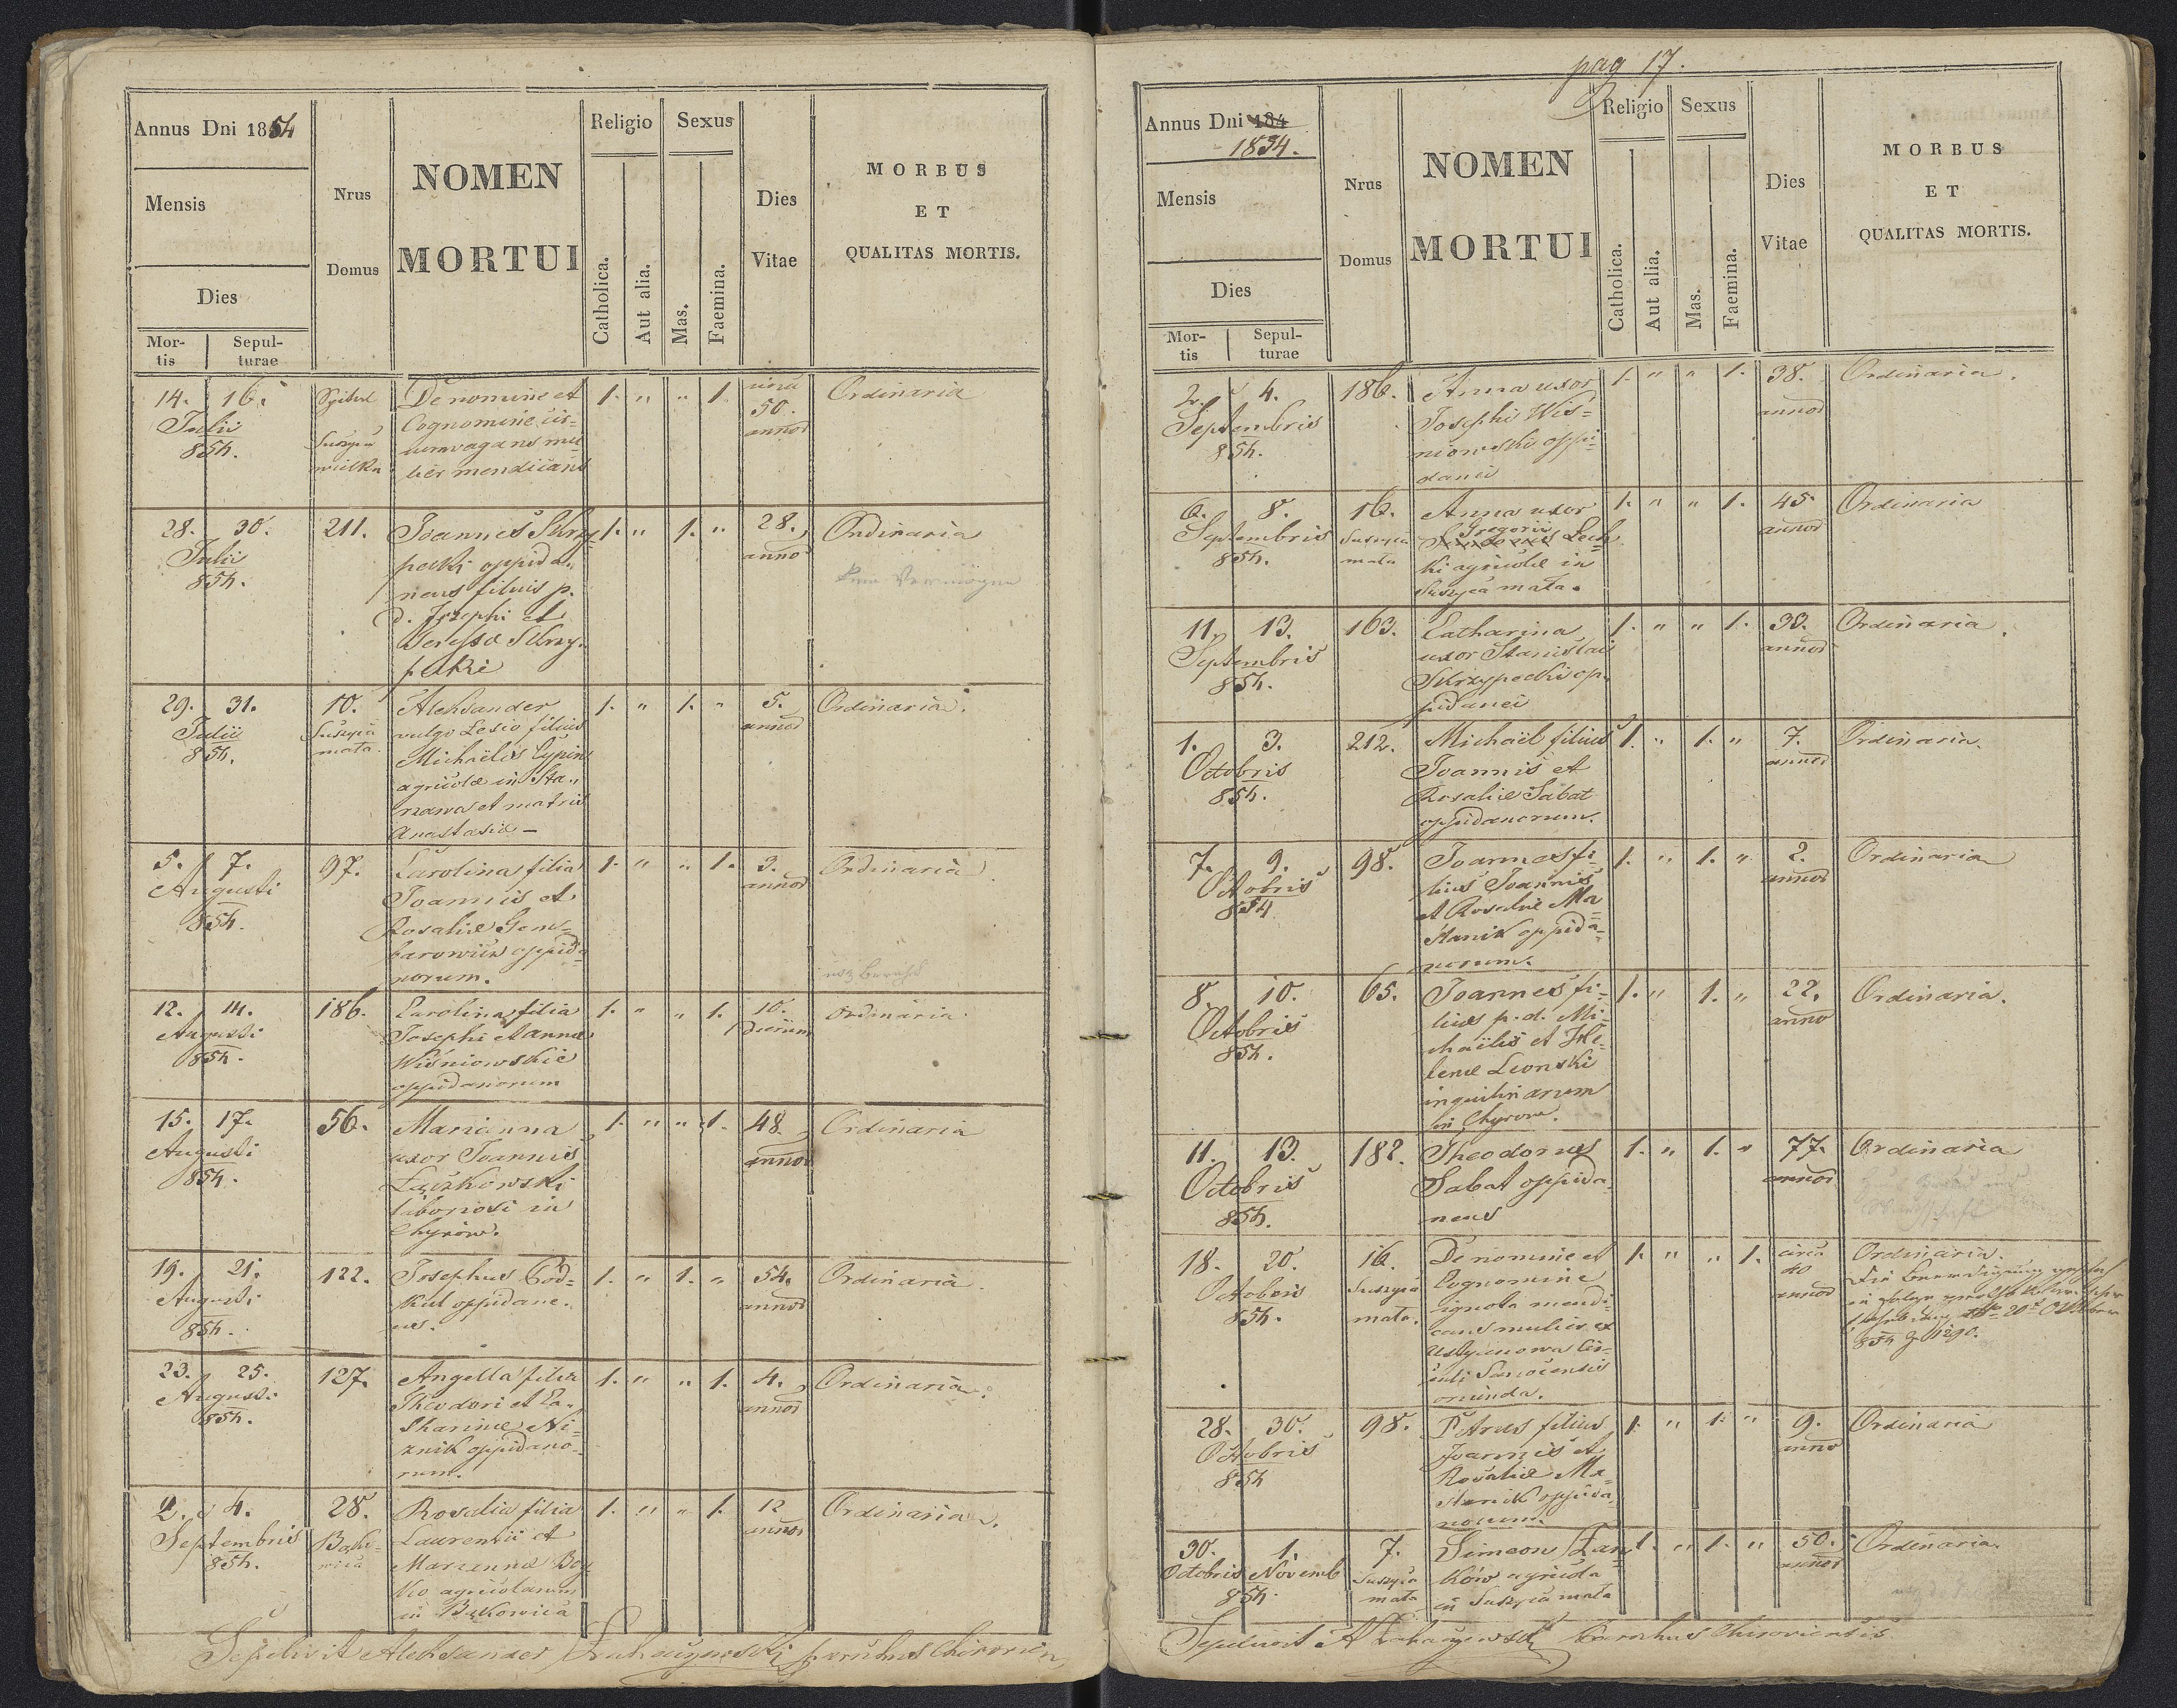 Annus Dni 1854
Mensis
Dies
Mor-
tis
Sepul-
turae
Nrus
Domus
NOMEN
MORTUI
Religio
Catholica.
Aut alia.
Sexus
Mas.
Faemina.
Dies
Vitae
MORBUS
ET
QUALITAS MORTIS.
14. 16.
Julii
854.
Suszyca
wielka
De nomine et
Cognomine
vagans mu-
lier mendicans
1. " " 1.
50.
annor
Ordinaria
28. 30.
Julii
854.
211.
Joannes Skrzy-
pecki oppida-
neus filius p.
d. Josephi et
Teressa Skrzy-
pecki
1. " 1. "
28.
anno
Ordinaria
29. 31.
Julii
854.
10.
Suszyca
mała.
Aleksander
vulgo Lesio filius
Michaëlis
agricolæ in Sta-
rzawa et matris
Anastasiæ –
1. " 1. "
5.
annor
Ordinaria.
5. 7.
Augusti
854.
97.
Carolina filia
Joannis et
Rosaliæ Gem-
barowicz oppida-
norum.
1. " " 1.
3.
annor
Ordinaria
12. 14.
Augusti
854.
186.
Carolina filia
Josephi et Annæ
Wiśniowskie
oppidanorum
1. " " 1.
10.
dierum
ordinaria
15. 17.
Augusti
854.
56.
Marianna
uxor Joannis
laboriosi in
Chyrów.
1. " " 1.
48.
annor
Ordinaria
19. 21.
Augusti
854.
122.
Josephus
oppidane-
us.
1. " 1. "
54.
annor
Ordinaria
23. 25.
Augusti
854.
127.
Angella filia
Theodori et Ca-
tharinæ Ni-
znik oppidano-
rum.
1. " " 1.
4.
annor
Ordinaria.
2. 4.
Septembris
854.
28.
Bąko-
wica
Rosalia filia
Laurentii et
Mariannæ Boy
ko agricolarum
in Bąkowica
1. " " 1.
12
annor
Ordinaria.
Sepelivit Aleksander parochus
pag 17.
Annus Dni 184
1854.
Mensis
Dies
Mor-
tis
Sepul-
turae
Nrus
Domus
NOMEN
MORTUI
Religio
Catholica.
Aut alia.
Sexus
Mas.
Faemina.
Dies
Vitae
MORBUS
ET
QUALITAS MORTIS.
2. 4.
Septembris
854.
186.
Anna uxor
Josephi Wis-
niowski oppi-
danei
1. " " 1.
38.
annor
Ordinaria.
6. 8.
Septembris
854.
16.
Suszyca
mała
Anna uxor
Gregorii
Lech
ki agricolæ in
Suszyca mała.
1. " " 1.
45
annor
Ordinaria
11. 13.
Septembris
854.
163.
Catharina
uxor Stanislai
Skrzypecki op-
pidanei
1. " " 1.
38.
annor
Ordinaria.
1. 3.
Octobris
854.
212.
Michaël filius
Joannis et
Rosaliæ Sabat
oppidanorum.
1. " 1. "
7.
annor
Ordinaria.
7. 9.
Octobris
854
98.
Joannes fi-
lius Joannis
et Rosaliæ Ma-
oppida-
norum.
1. " 1. "
2.
annor
Ordinaria
8. 10.
Octobris
854.
65.
Joannes fi-
lius p. d. Mi-
chaëlis et He-
lenæ Lionski
inquilinarum
in Chyrow.
1. " 1. "
22.
anno
Ordinaria.
11. 13.
Octobris
854.
182.
Theodorus
Sabat oppida-
neus
1. " 1. "
77.
annor
Ordinaria
18. 20.
Octobris
854.
16.
Suszyca
mała.
De nomine et
Cognomine
ignota mendi-
cans mulier ex
Ustyanowa Cir-
culi Sanocensis
oriunda.
1. " " 1.
circa
40
annor
Ordinaria.
Die Beerdigung
20 October
854 1290.
28. 30.
Octobris
854
98.
Petrus filius
Joannis et
Rosaliæ Ma-
oppida-
norum.
1. " 1. "
9.
anno
Ordinaria
30. 1.
Octobris Novemb
854.
7.
Suszyca
mała
Simeon
ków agricola
in Suszyca mała
1. " 1. "
50.
annor
Ordinaria.
Sepelivit A Parochus Chiroviensis